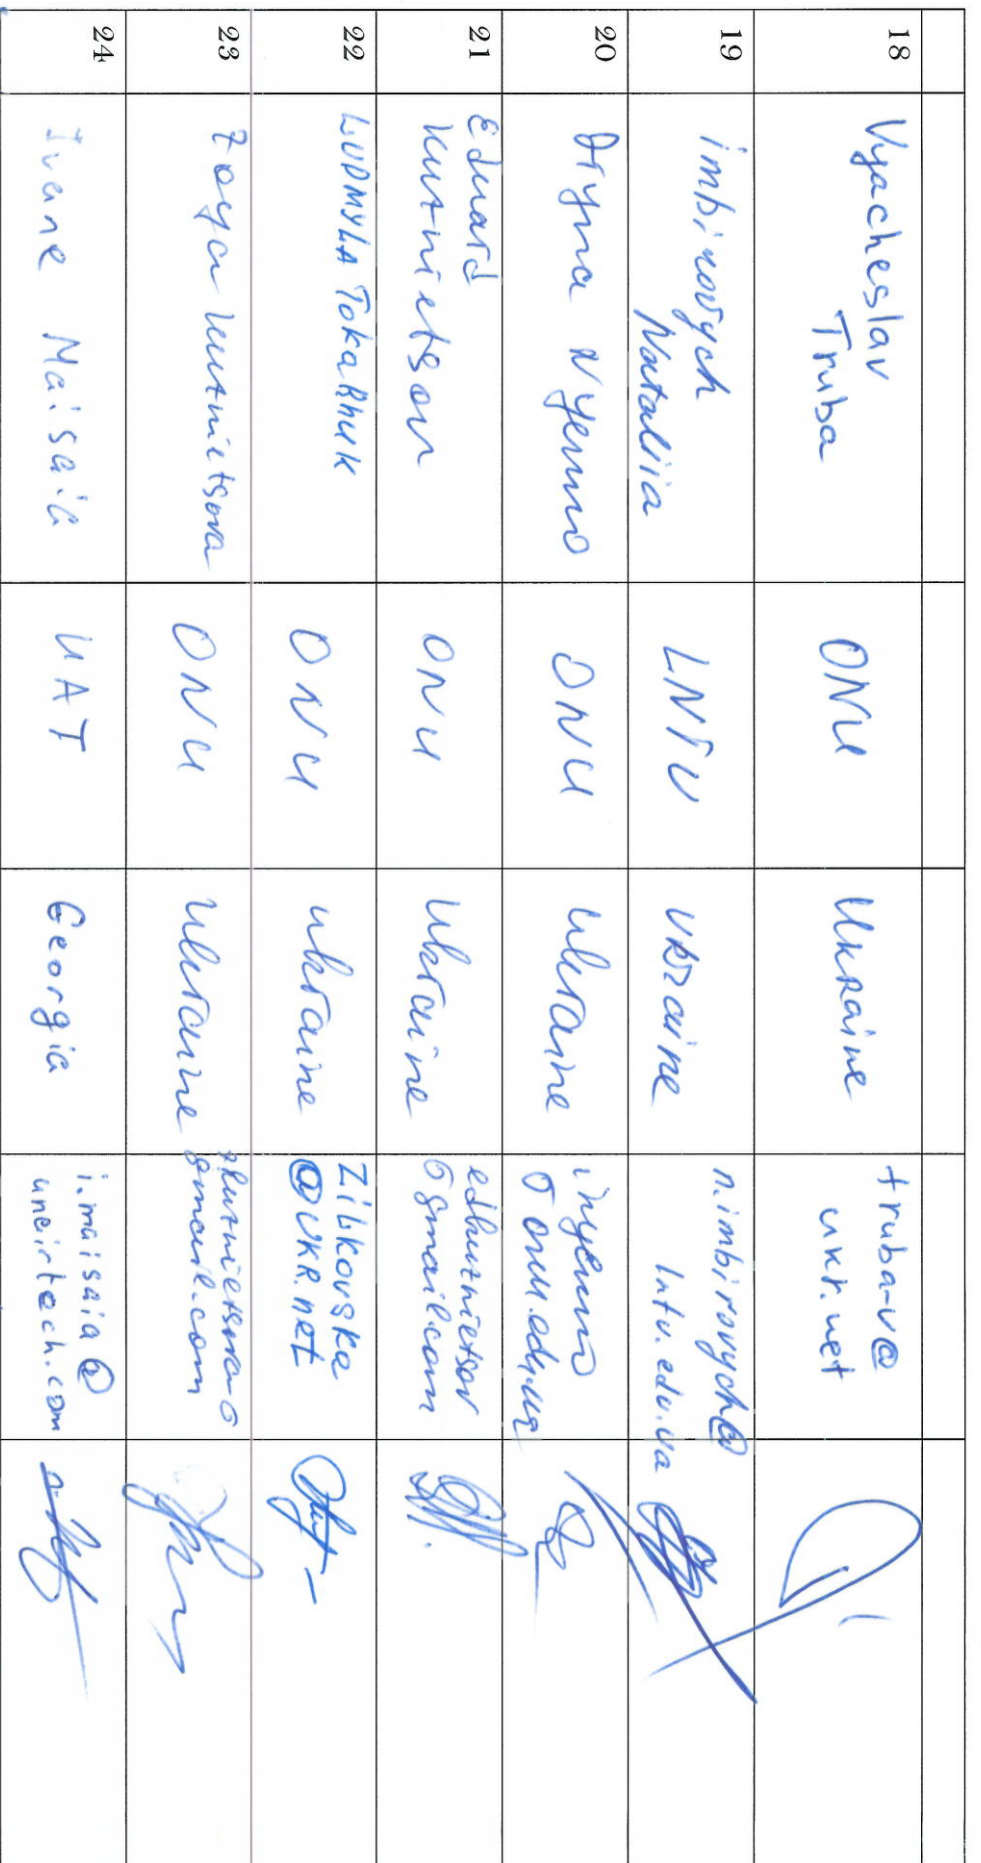 18
Vyacheslav
Truba
ONU
Ukraine
truba-v@
ukr.net
19
imbirovych
Nataliia
LNTU
Ukraine
n.imbirovych@
lntu.edu.ua
20
Iryna Nyenno
ONU
Ukraine
inyenno
@onu.edu.ua
21
Eduard
Kuznietsov
ONU
Ukraine
edkuznietsov
@gmail.com
22
LUDMYLA TokaRhuk
ONU
ukraine
ZiLkovska
@UKR.NET
23
Zoya Kuznietsova
ONU
Ukraine
zkuznietsova@
gmail.com
24
Ivane Maisaia
UAT
Georgia
i.maisaia@
unairtech.com